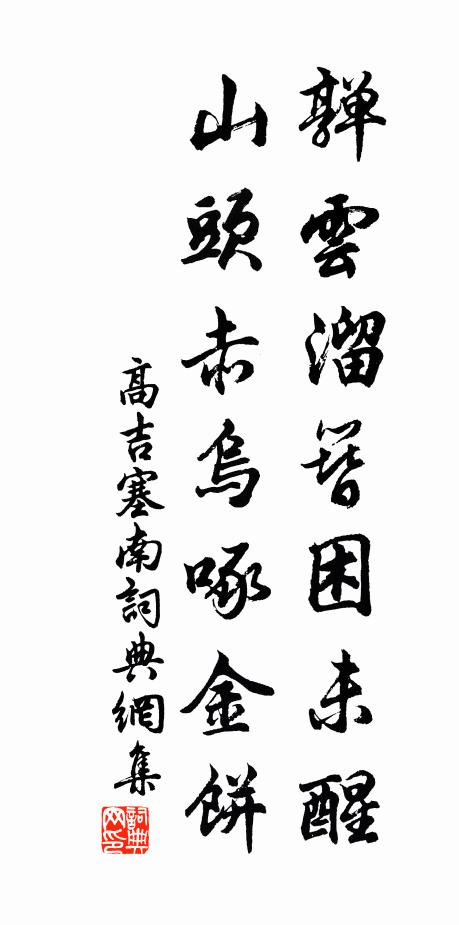 嚲雲溜簪困未醒
山頭赤烏啄金餅
高吉塞南詞典網集
詞典
网印